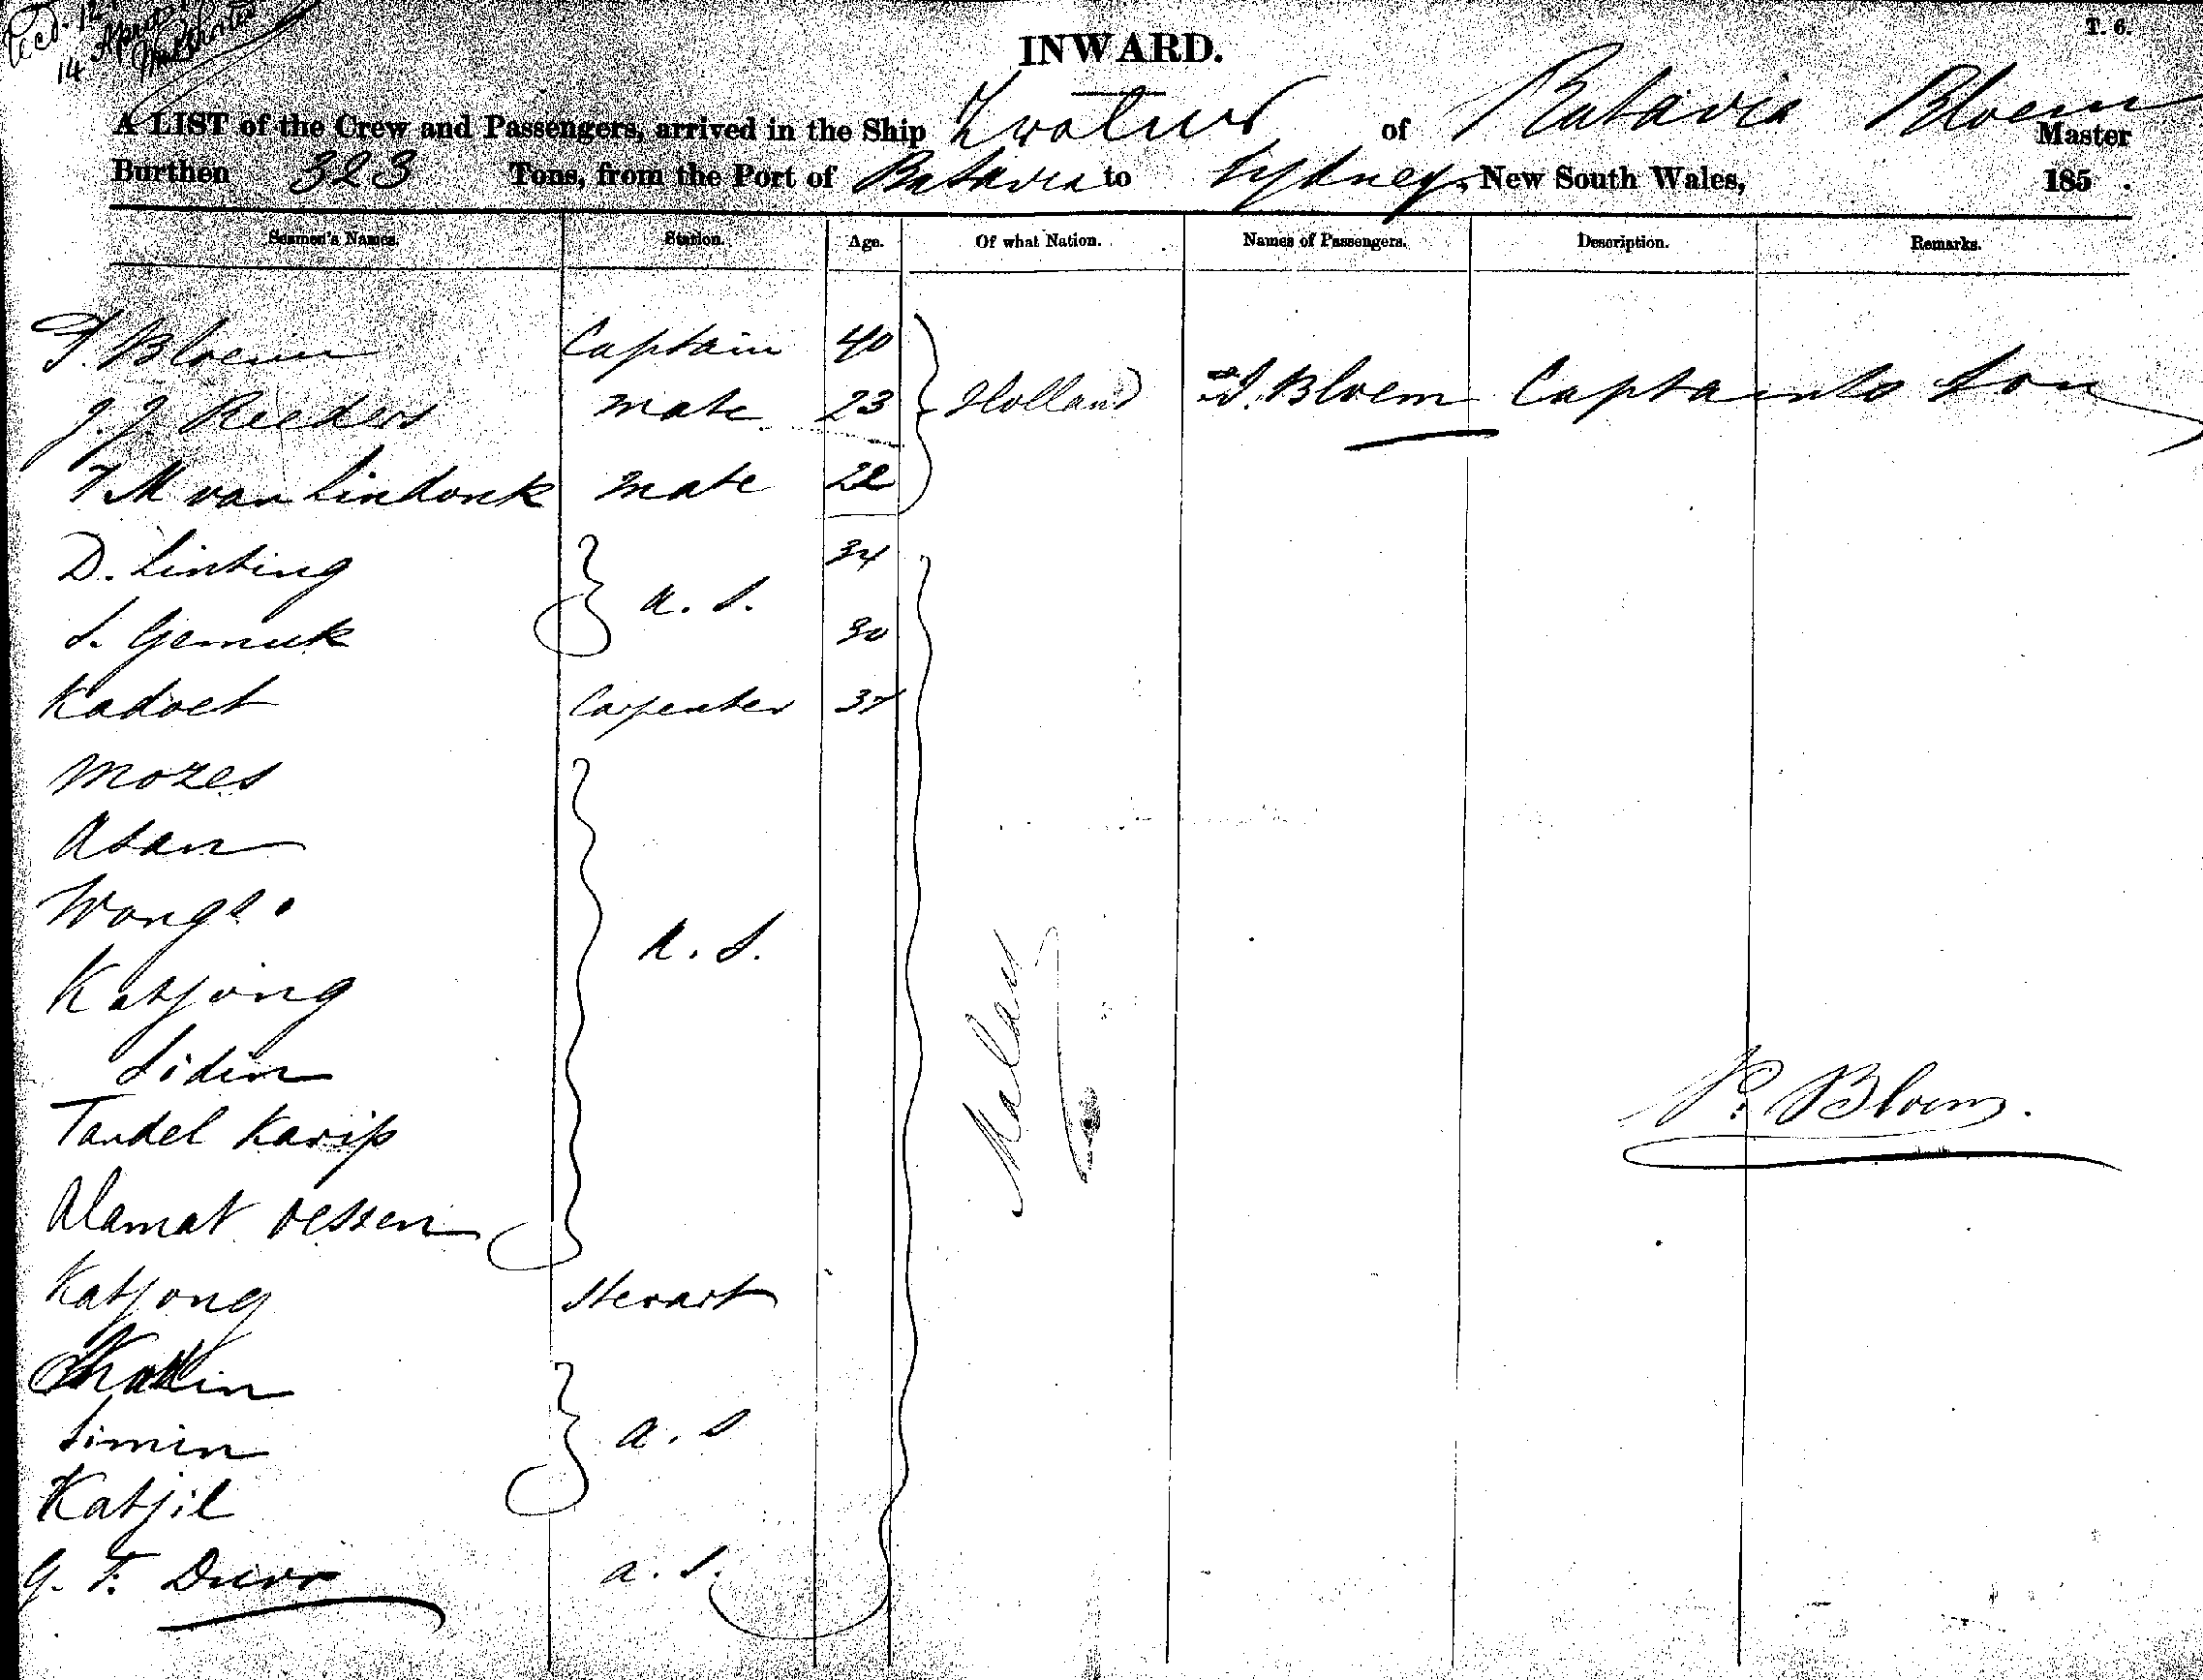 14 April
T. 6.
INWARD.
A LIST of the Crew and Passengers, arrived in the Ship of Batavia Bloem Master
Burthen 323 Tons, from the Port of Batavia to Sydney, New South Wales, 185 .
Seamen's Names. Station. Age. Of what Nation. Names of Passengers. Description. Remarks.
P. Bloem Captain 40
J. J. Reeders mate 23 Holland J. Bloem Captains Son
van Lindonk mate 22
D. Linting 34
a. S.
S. Gemuk 30
Kadoet Carpenter 37
Mozes
Asan
Wongso
a. S.
Katjong
Sidin
Malays
P. Bloem.
Tandel Karip
Alamat oessen
Katjong Stewart
Simin a. S
Katjil
G. F. Duvr a. S.